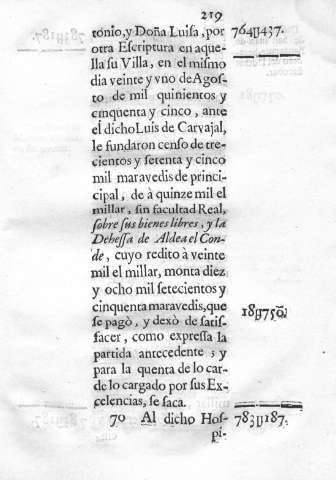 219
tonio, y Doña Luisa, por 764y437.
otra Escriptura en aque-
lla su Villa, en el mismo
dia veinte y vno de Agos-
to de mil quinientos y
cinquenta y cinco, ante
el dicho Luis de Carvajal,
le fundaron censo de tre-
cientos y setenta y cinco
mil maravedis de princi-
cipal, de à quinze mil el
millar, sin facultad Real,
sobre sus bienes libres, y la
Dehessa de Aldea el Con-
de, cuyo redito à veinte
mil el millar, monta diez
y ocho mil setecientos y
cinquenta maravedis, que
se pagò, y dexò de satis- 18y750.
facer, como expressa la
partida antecedente; y
para la quenta de lo car-
de lo cargado por sus Ex-
celencias, se saca.
70 Al dicho Hos- 783y187.
pi-